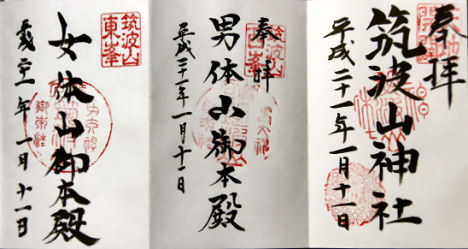 奉拝
筑波山神社
平成二十一年一月十一日
筑波山
西峯
奉拝
男体山御本殿
平成二十一年一月十一日
筑波山
東峯
女体山御本殿